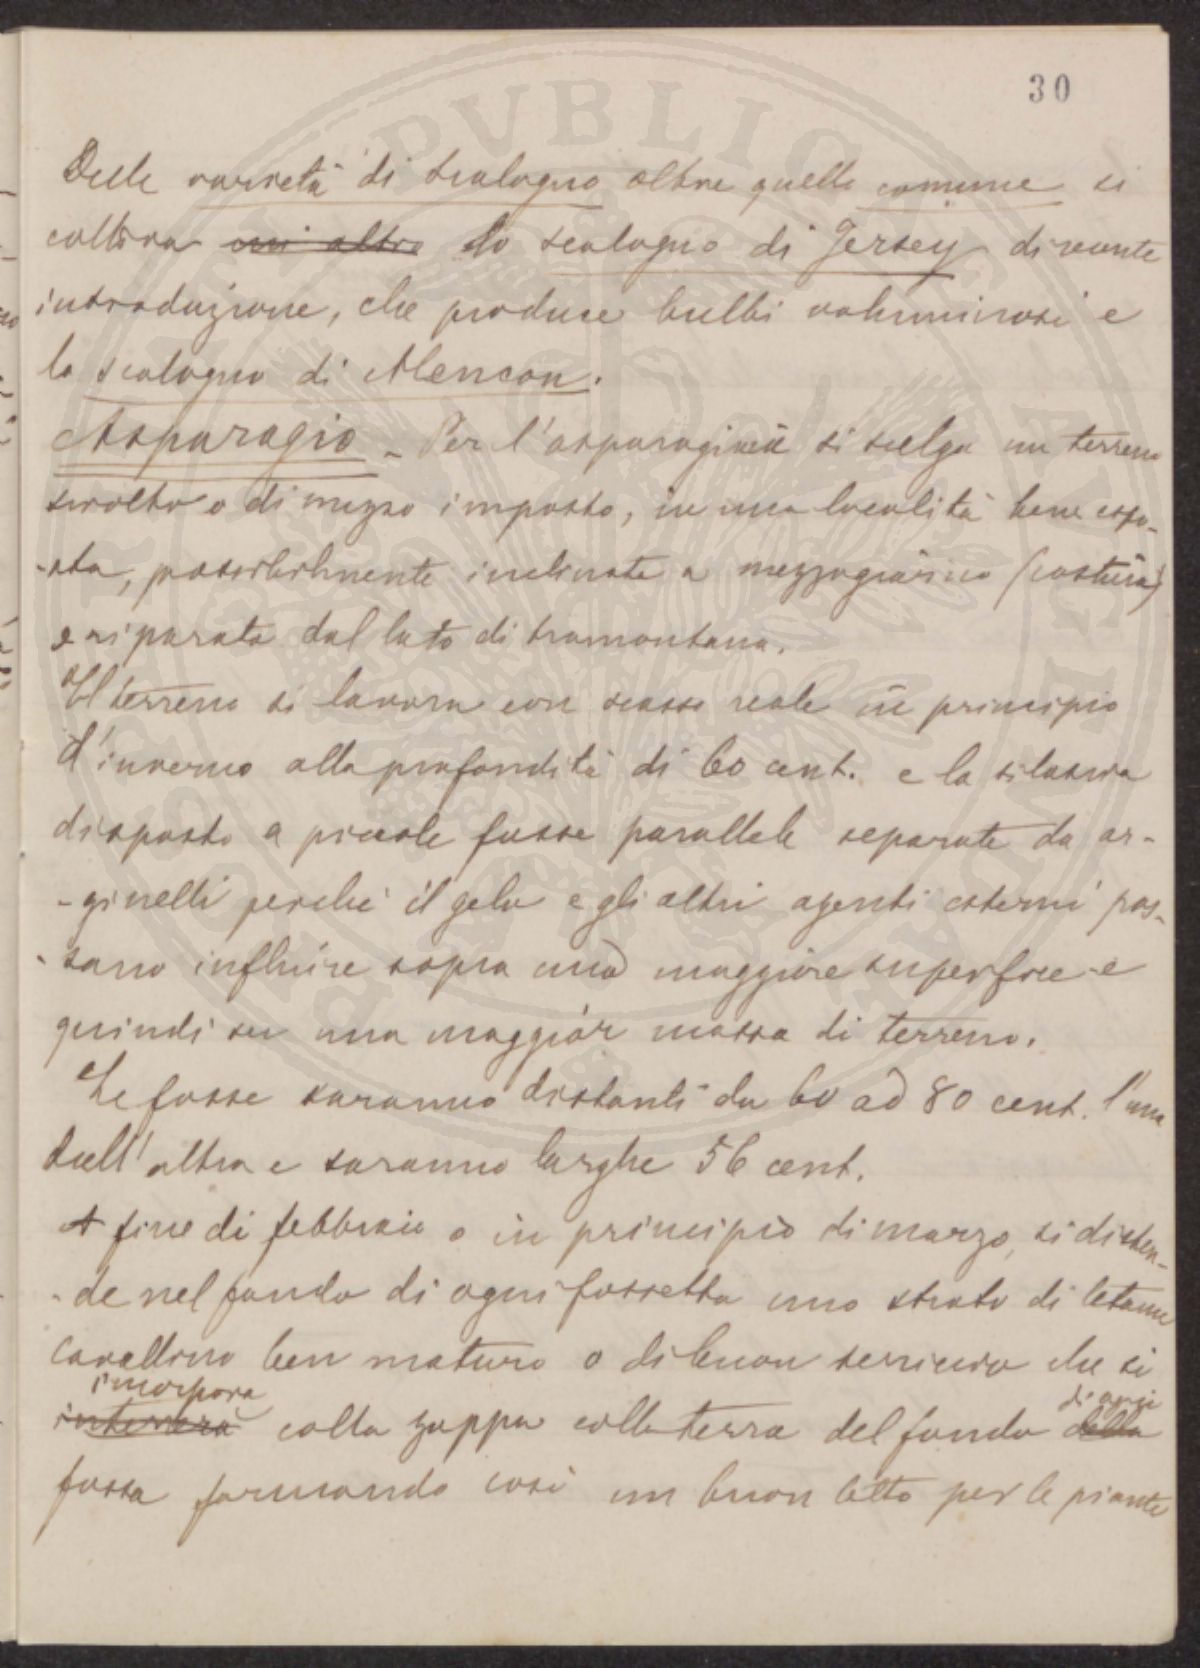 30
Delle varietà di scalogno oltre quello comune si
coltiva un altro lo scalogno di Jersey di recente
introduzione, che produce bulbi voluminosi e
lo scalogno di Alencon.
Asparagio - Per l'asparagiaia si scelga un terreno
sciolto o di mezzo impasto, in una località bene espo-
-sta, possibilmente inclinata a mezzogiorno (costiera)
e riparata dal lato di tramontana.
Il terreno si lavora con scasso reale in principio
d'inverno alla profondità di 60 cent. e la si lascia
disposto a piccole fosse parallele separate da ar-
-ginelli perchè il gelo e gli altri agenti esterni pos-
-sano influire sopra una maggiore superfice e
quindi su una maggior massa di terreno.
Le fosse saranno distanti da 60 ad 80 cent. l'una
dall'altra e saranno larghe 56 cent.
A fine di febbraio o in principio di marzo, si disten-
-de nel fondo di ogni fossetta uno strato di letame
cavallino ben maturo o di buon terriccio che si
incorpora
interrerà colla zappa colla terra del fondo della di ogni
fossa formando così un buon letto per le piante